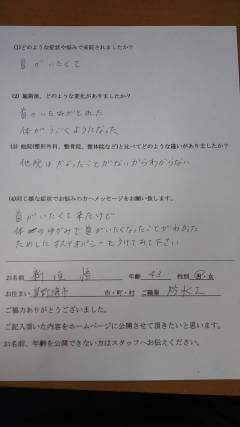 (1)どのような症状や悩みで来院されましたか?
首がいたくて
(2) 施術後、どのような変化がありましたか?
首のいたみがとれた
体がうごくようになった
(3) 他院(整形外科、整骨院、整体院など)と比べてどのような違いがありましたか?
他院は行ったことがないからわからない
(4)同じ様な症状でお悩みの方へメッセージをお願い致します。
首がいたくて来たけど
体のゆがみで首がいたくなったことがわかった
ためしに
うけてみて下さい
お名前 新垣 悟 年齢 43 性別 男・女
お住まい 宜野湾市 市・町・村 ご職業 防水工
ご協力ありがとうございました。
ご記入頂いた内容をホームページに公開させて頂きたいと思います。
お名前、年齢を公開できない方はスタッフへお伝えください。